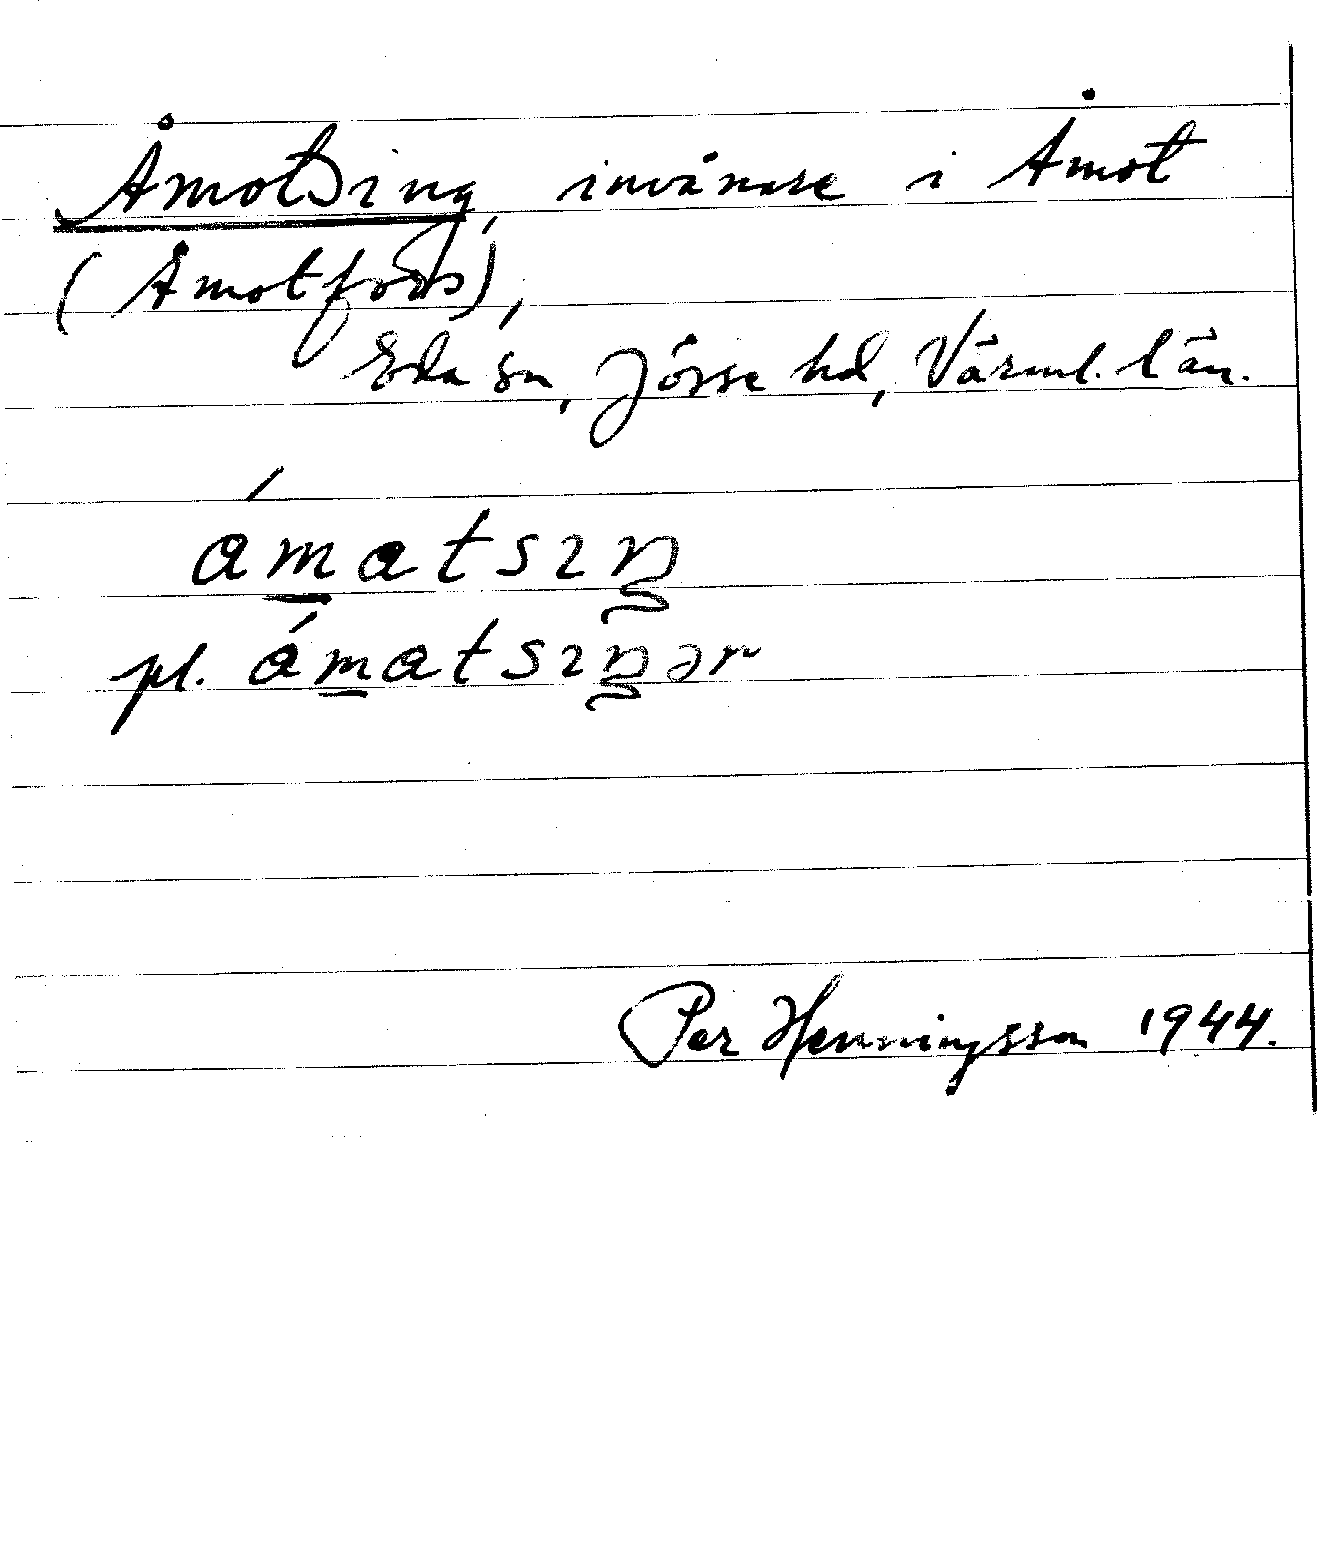 Åmotsing, invånare i Åmot
(Åmotfors),
Eda sn, Jösse hd, Värml. län.
ámatsıŋ
pl. ámatsıŋər
Per Henningsson 1944.